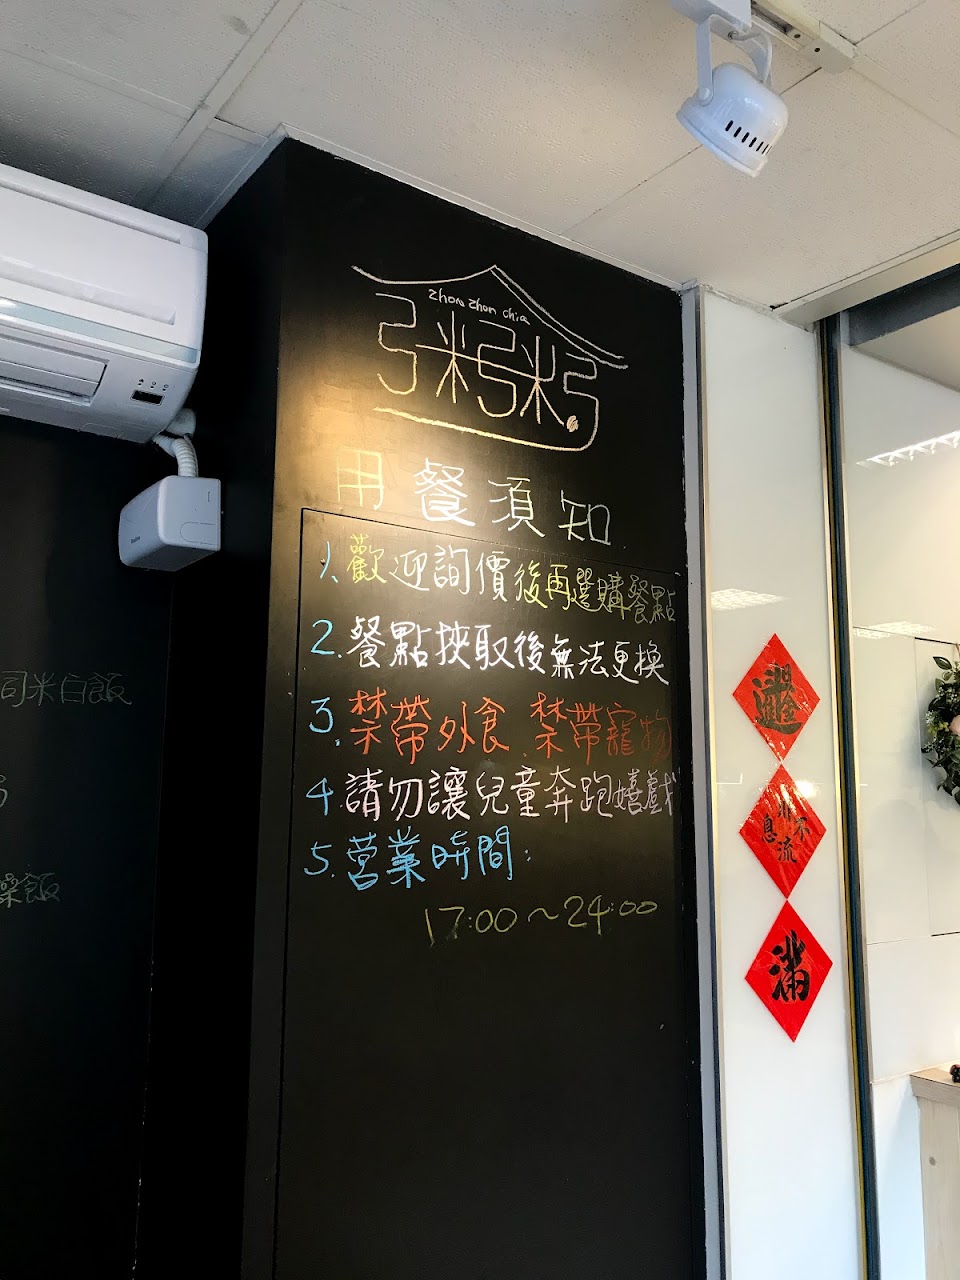 zhou zhou chia
粥粥
用餐須知
1. 歡迎詢價後再選購餐點
2. 餐點挾取後無法更換
3. 禁帶外食 禁帶寵物
4. 請勿讓兒童奔跑嬉戲
5. 营業時間:
17:00~24:00
司米白飯
燥飯
滿